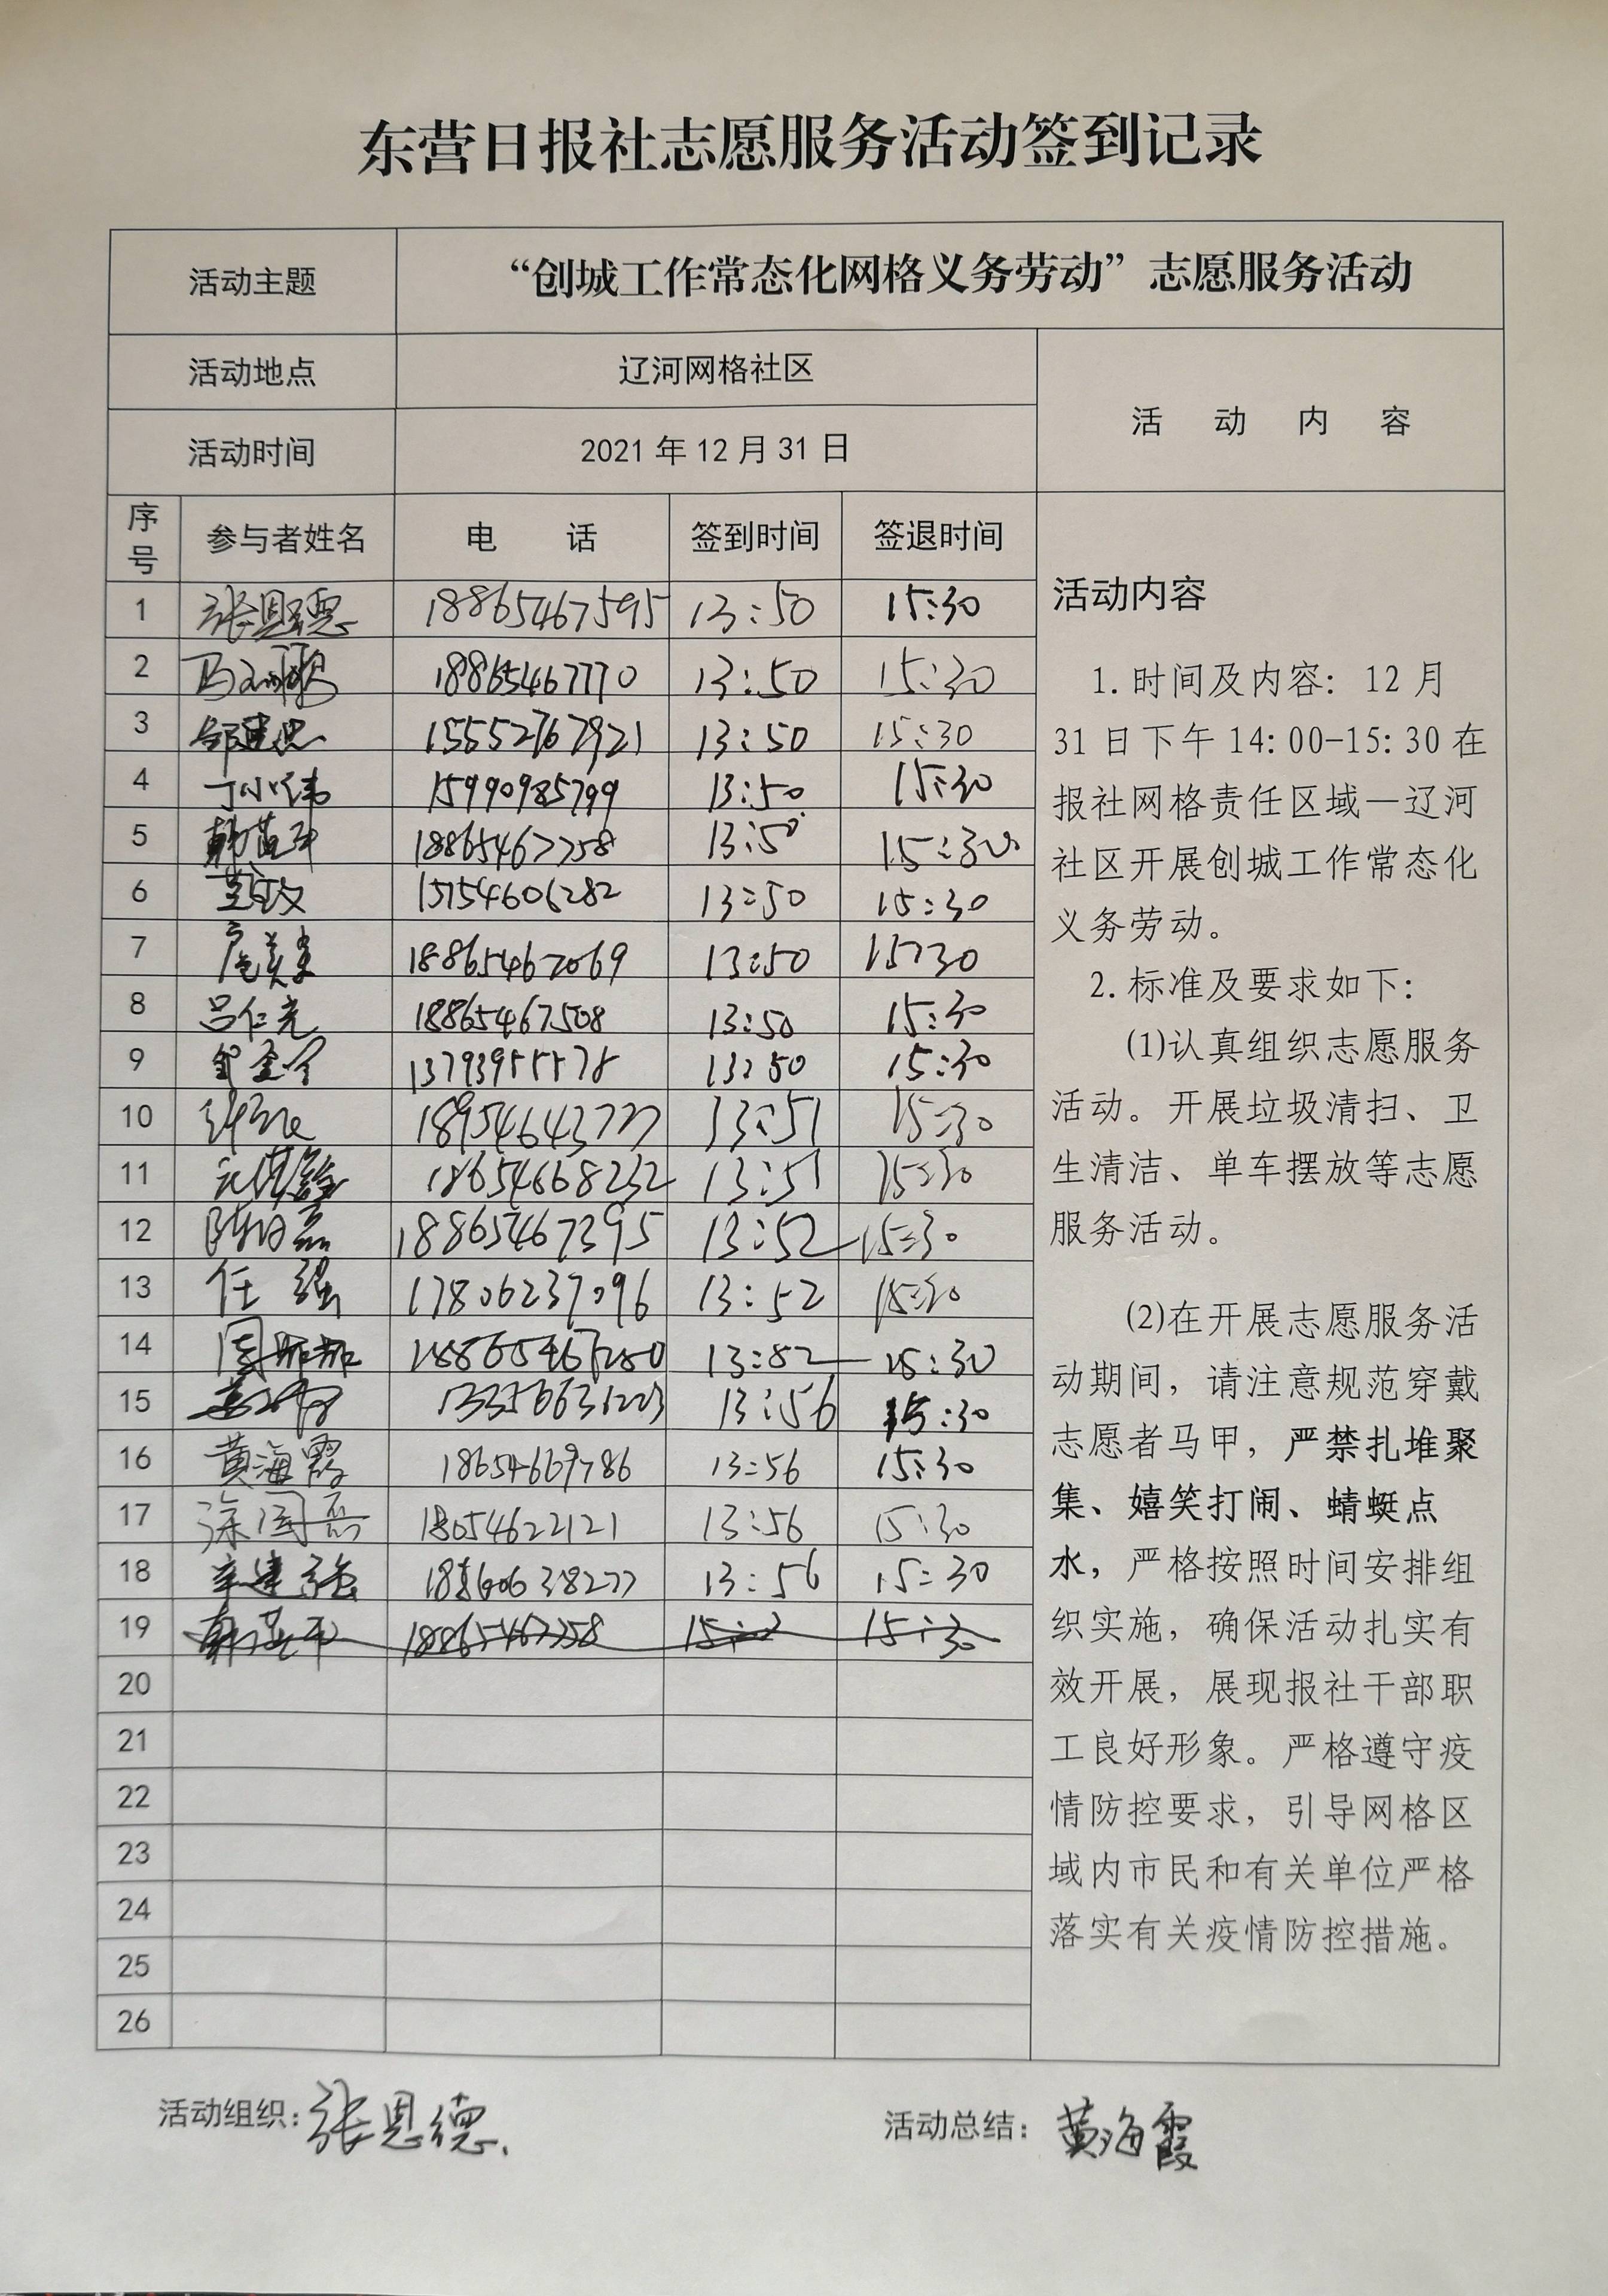 东营日报社志愿服务活动签到记录
活动主题 “创城工作常态化网格义务劳动”志愿服务活动
活动地点 辽河网格社区
活动时间 2021年12月31日
活动内容
序号 参与者姓名 电话 签到时间 签退时间
1 张恩德 18865467595 13:50 15:30
2 18865467770 13:50 15:30
3 15552767921 13:50 15:30
4 丁小伟 15990985799 13:50 15:30
5 18865467758 13:50 15:30
6 15154606282 13:50 15:30
7 13:50 15:30
8 吕仁亮 18865467508 13:50 15:30
9 13:50 15:30
10 13:51 15:30
11 18654668232 13:51 15:30
12 18865467395 13:52 15:30
13 任强 17806237096 13:52 15:30
14 13:52 15:30
15 13:56 15:30
16 黄海霞 18654669786 13:56 15:30
17 徐国磊 18054622121 13:56 15:30
18 辛建强 13:56 15:30
19
20
21
22
23
24
25
26
活动内容
1.时间及内容：12月
31日下午14:00-15:30在
报社网格责任区域—辽河
社区开展创城工作常态化
义务劳动。
2.标准及要求如下：
(1)认真组织志愿服务
活动。开展垃圾清扫、卫
生清洁、单车摆放等志愿
服务活动。
(2)在开展志愿服务活
动期间，请注意规范穿戴
志愿者马甲，严禁扎堆聚
集、嬉笑打闹、蜻蜓点
水，严格按照时间安排组
织实施，确保活动扎实有
效开展，展现报社干部职
工良好形象。严格遵守疫
情防控要求，引导网格区
域内市民和有关单位严格
落实有关疫情防控措施。
活动组织：张恩德
活动总结：黄海霞